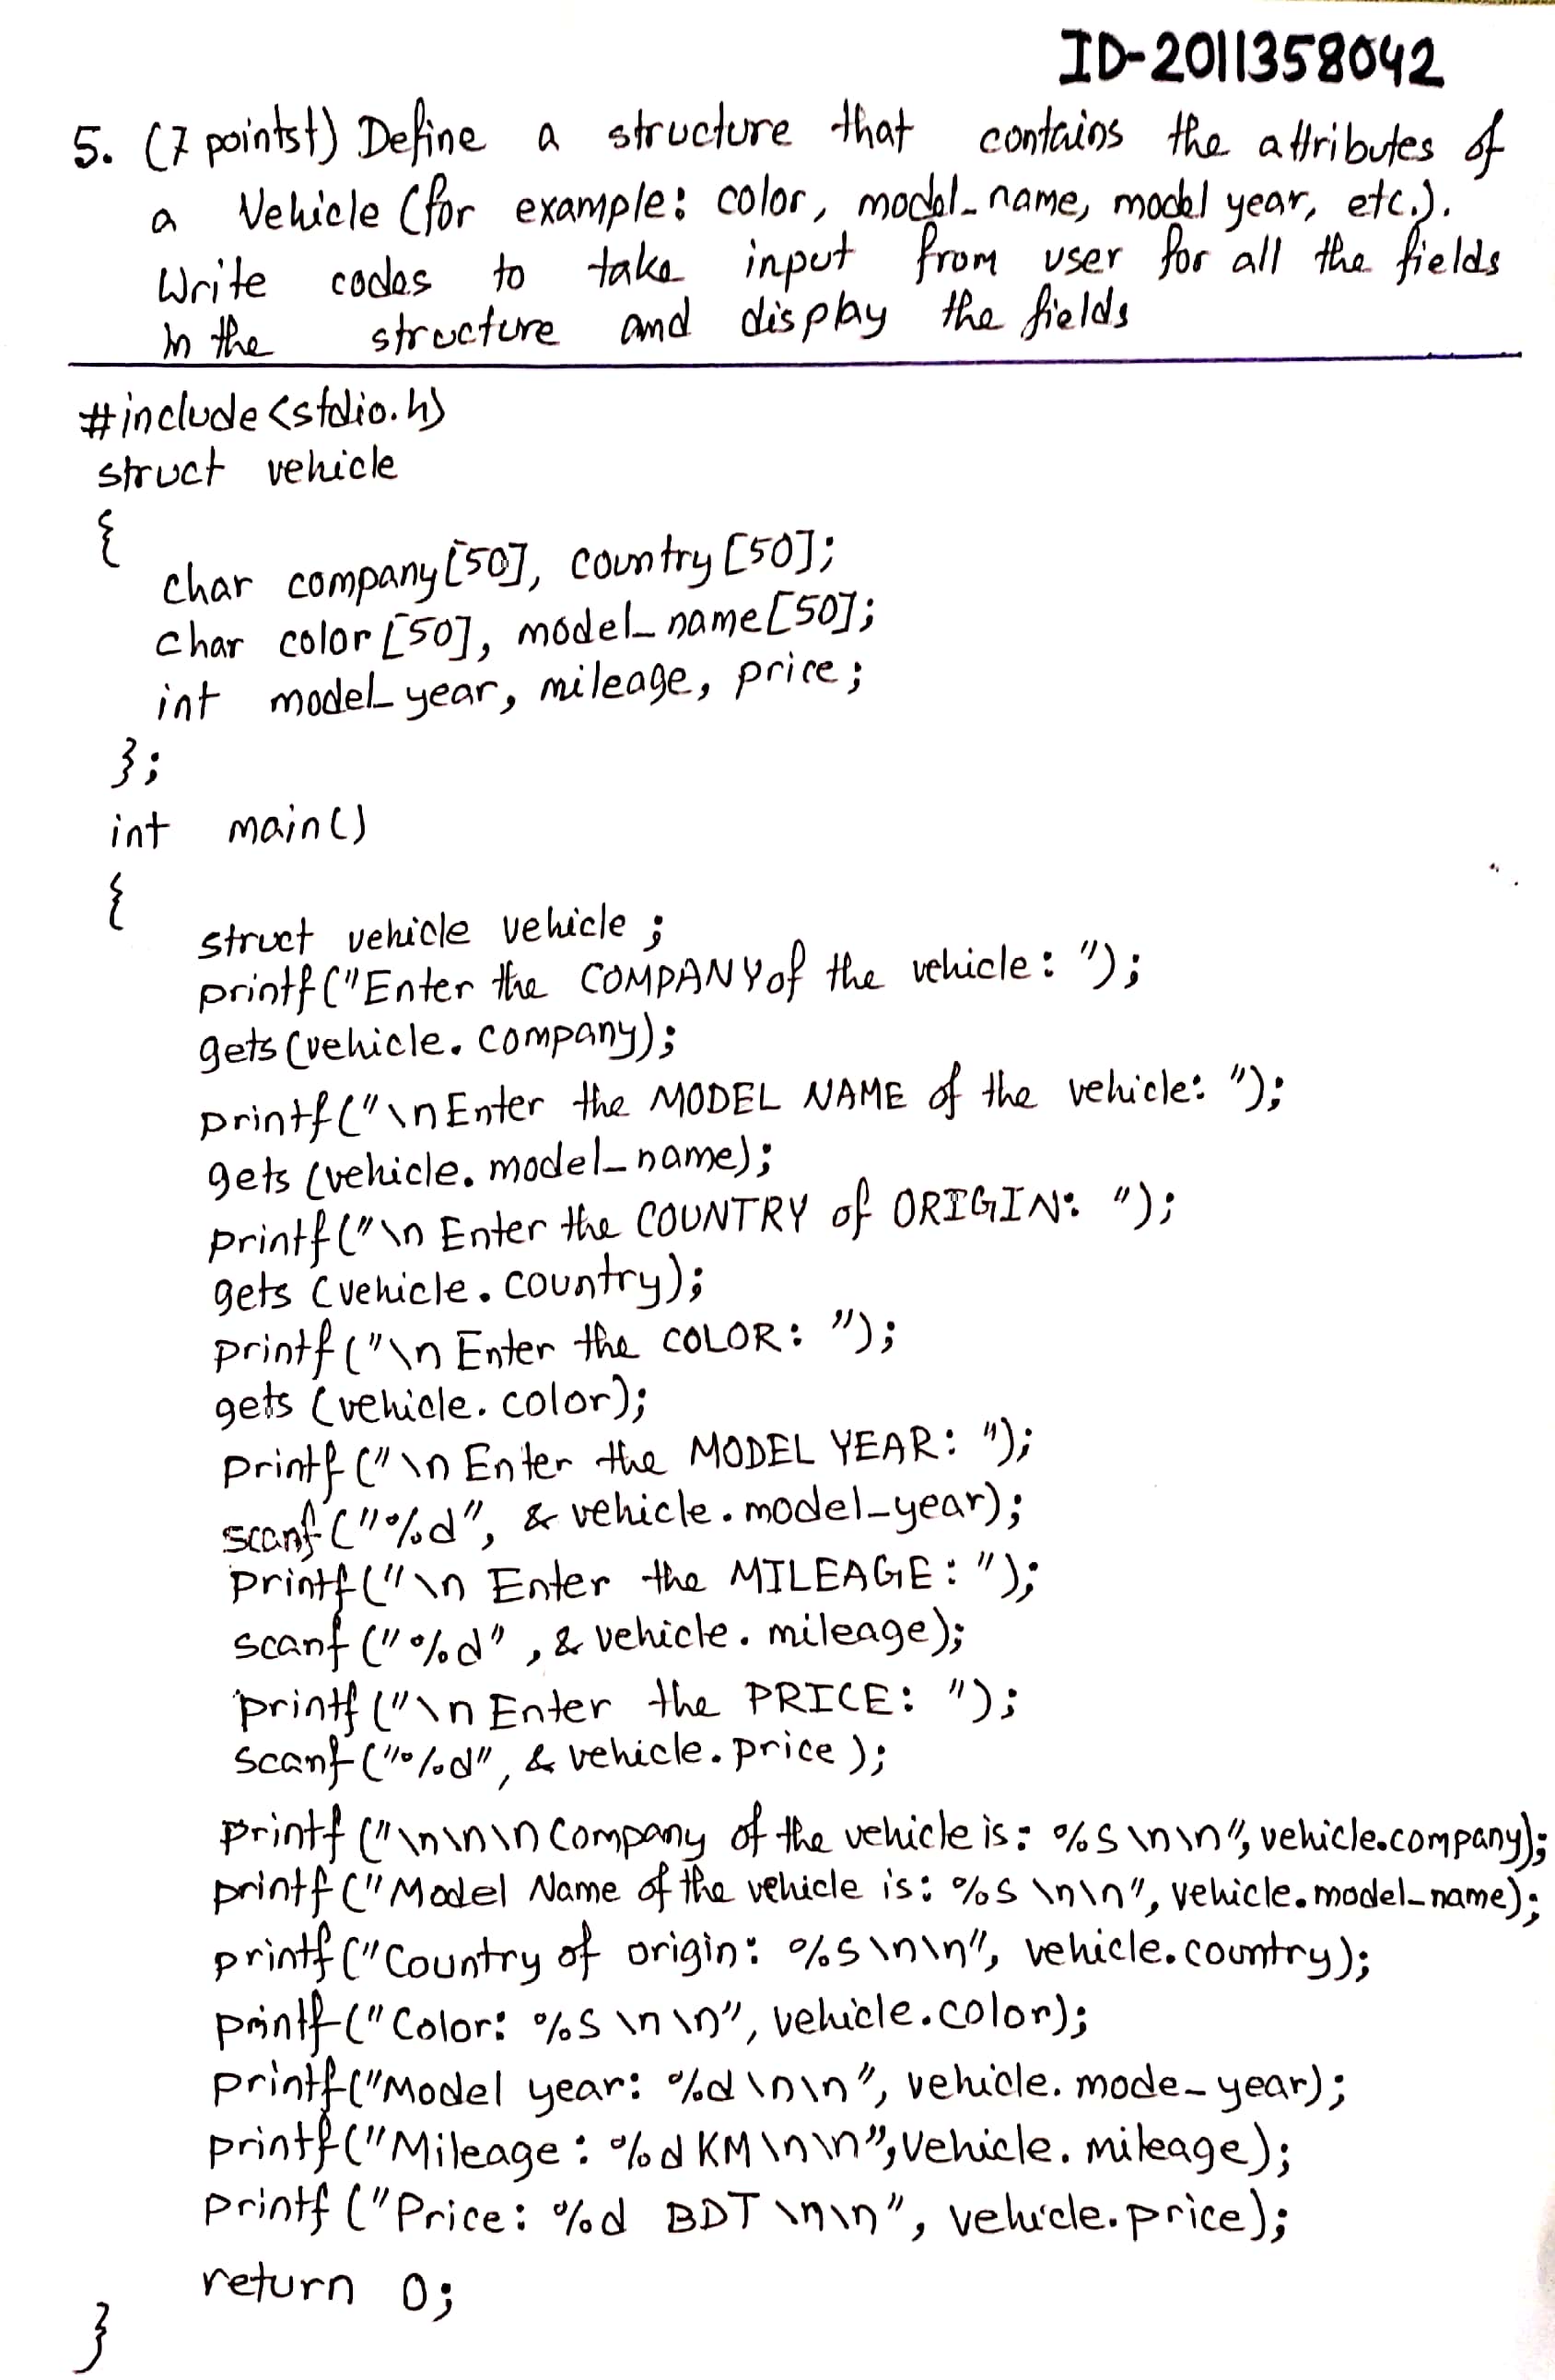 ID-2011358042
5. (7 pointst) Define a structure that contains the attributes of
a Vehicle (for example: color, model_name, model year, etc.).
Write codes to take input from user for all the fields
in the structure and display the fields
#include<stdio.h>
struct vehicle
{
char company[50], country[50];
char color[50], model_name[50];
int model_year, mileage, price;
};
int main()
{
struct vehicle vehicle;
printf("Enter the COMPANY of the vehicle: ");
gets(vehicle.company);
printf("\nEnter the MODEL NAME of the vehicle: ");
gets(vehicle.model_name);
printf("\n Enter the COUNTRY of ORIGIN: ");
gets(vehicle.country);
printf("\n Enter the COLOR: ");
gets(vehicle.color);
printf("\n Enter the MODEL YEAR: ");
scanf("%d", &vehicle.model_year);
printf("\n Enter the MILEAGE: ");
scanf("%d", &vehicle.mileage);
printf("\n Enter the PRICE: ");
scanf("%d", &vehicle.price);
printf("\n\n\n Company of the vehicle is: %s \n\n", vehicle.company);
printf("Model Name of the vehicle is: %s \n\n", vehicle.model_name);
printf("Country of origin: %s \n\n", vehicle.country);
printf("Color: %s \n\n", vehicle.color);
printf("Model year: %d \n\n", vehicle.mode_year);
printf("Mileage: %d KM \n\n", vehicle.mileage);
printf("Price: %d BDT \n\n", vehicle.price);
return 0;
}